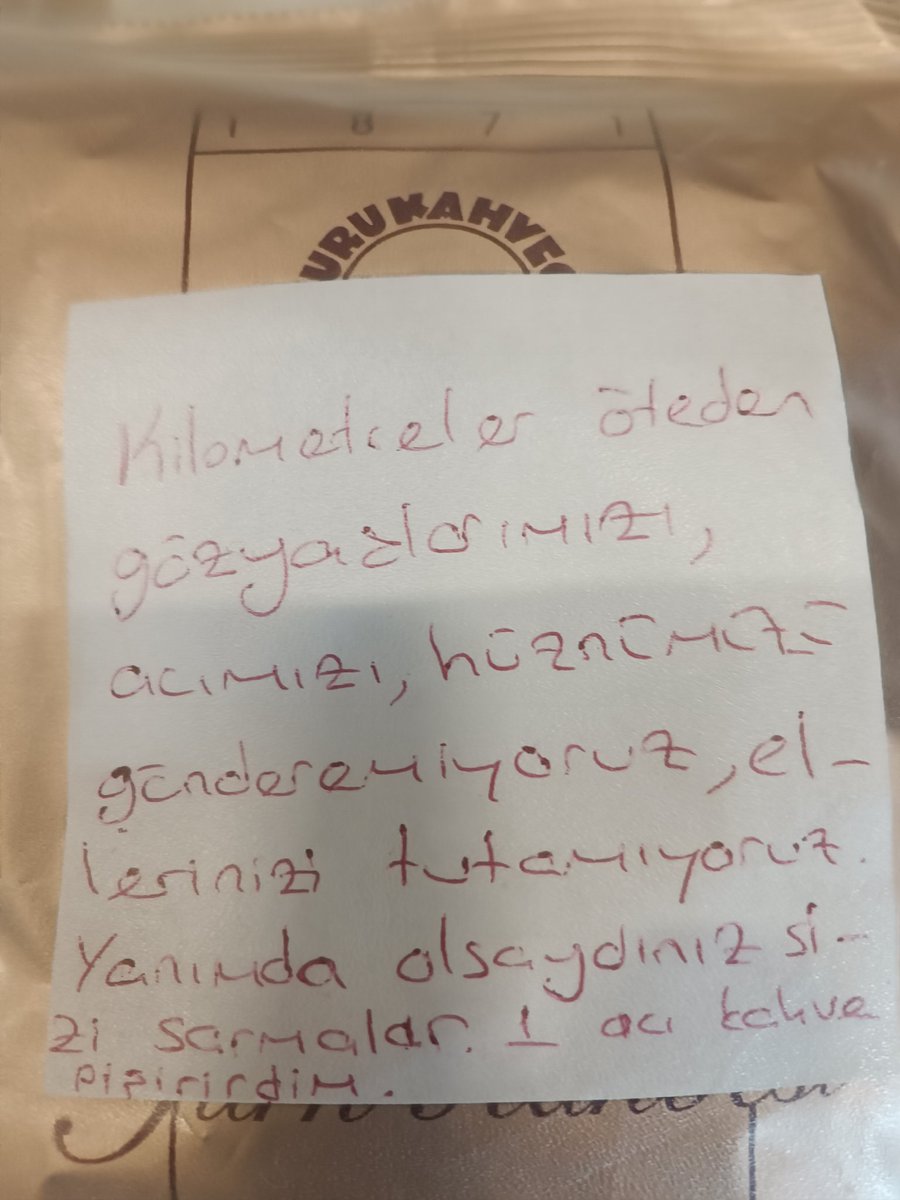 1 8 7 1
URUKAHVEC
Kilometreler öteden
gözyaşlarımızı,
acımızı, hüznümüzü
gönderemiyoruz, el-
lerinizi tutamıyoruz.
Yanımda olsaydınız si-
zi sarmalar. 1 acı kahve
pişirirdim.